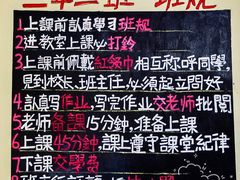 班 班规
1上课前认真学习班规
2进教室上课必打铃
3上课前佩戴红领巾相互称呼同学,
见到校长、班主任必须起立问好
4认真写作业,写完作业交老师批阅
5老师备课15分钟,准备上课
6上课45分钟,课上遵守课堂纪律
7下课交学费